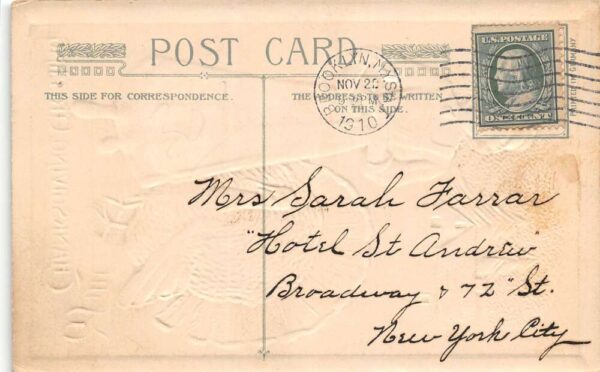 POST CARD
THIS SIDE FOR CORRESPONDENCE.
THE ADDRESS TO BE WRITTEN
ON THIS SIDE.
BROOKLYN, N.Y.
NOV 22
1910
U.S. POSTAGE
ONE CENT
Mrs Sarah Farrar
"Hotel St Andrew"
Broadway & 72" St.
New York City